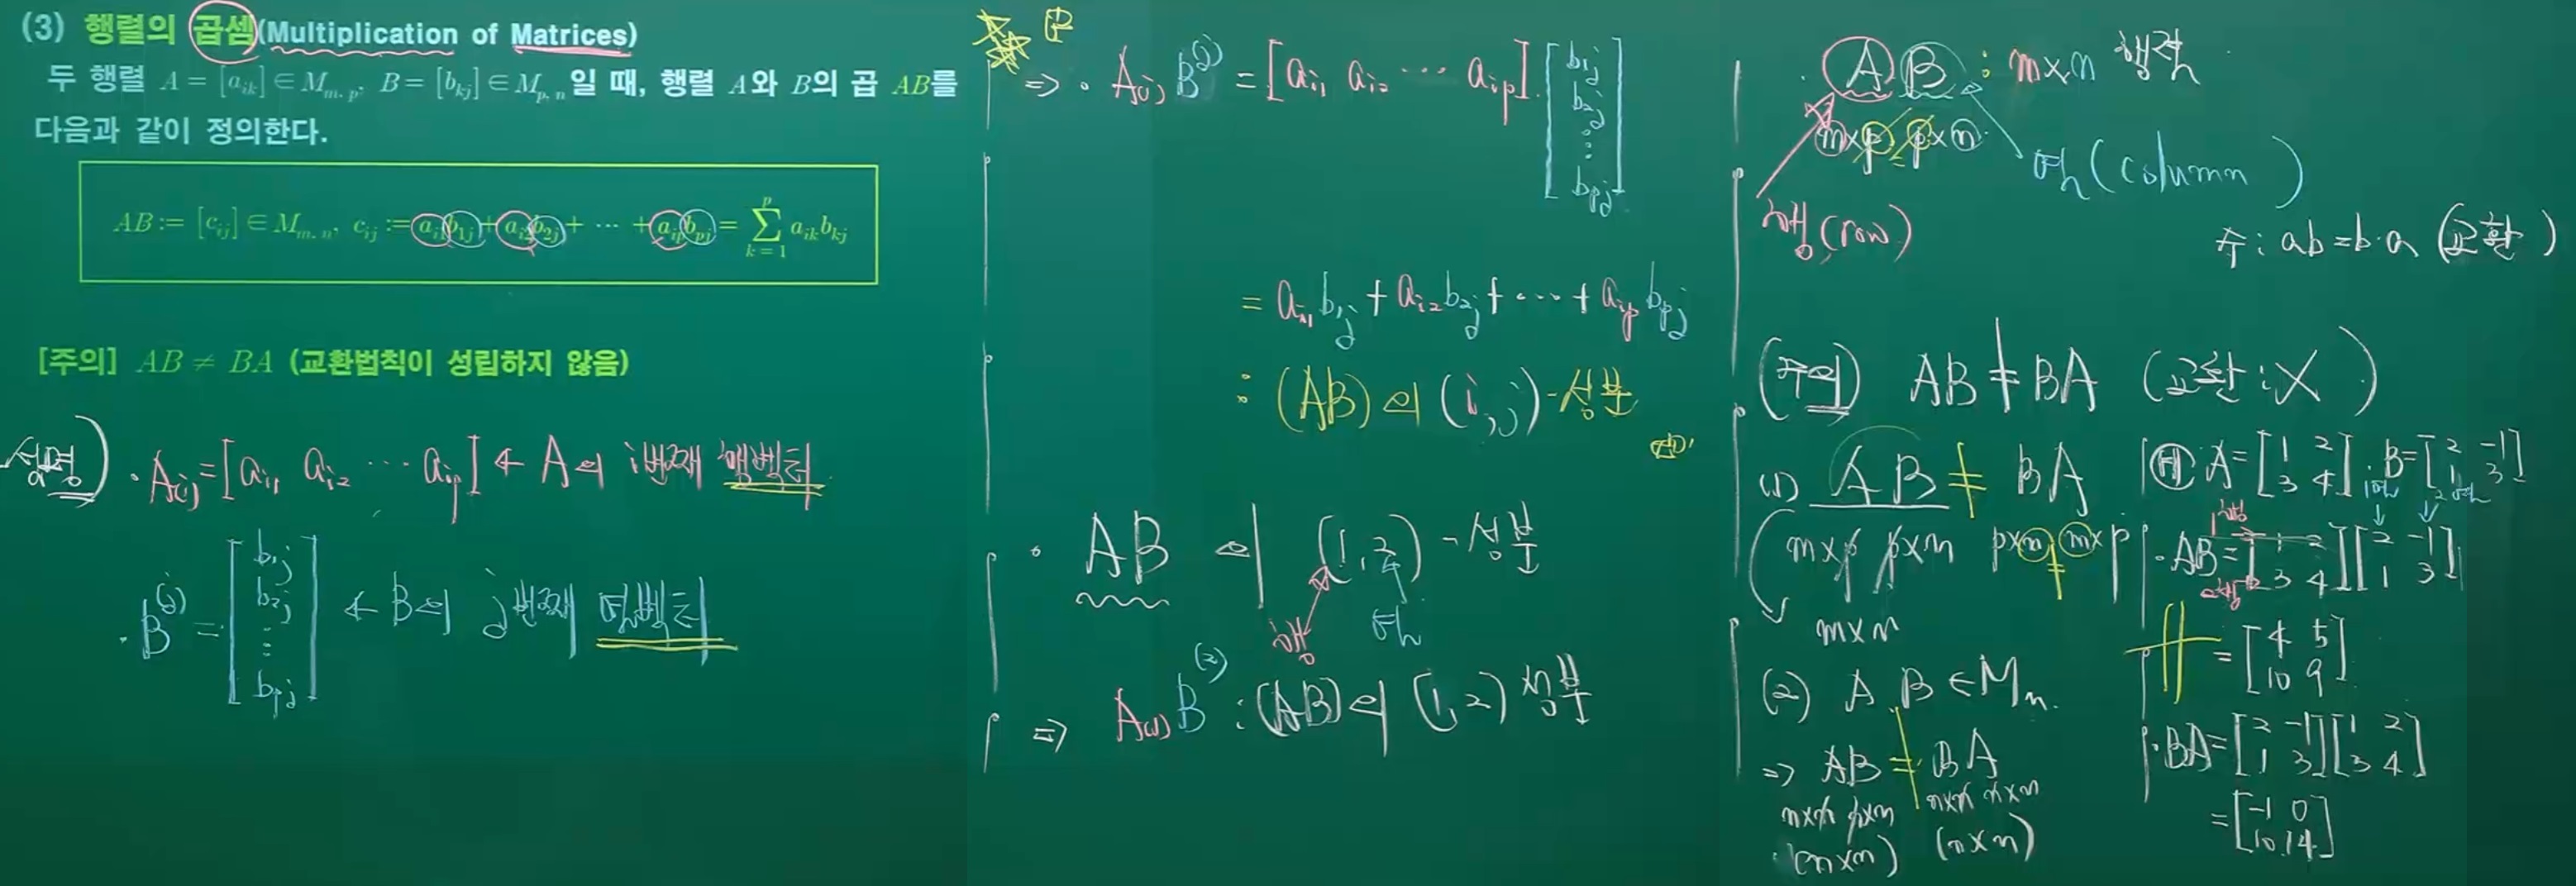 (3) 행렬의 곱셈(Multiplication of Matrices)
두 행렬 A = [a_{ik}] ∈ M_{m, p}, B = [b_{kj}] ∈ M_{p, n}일 때, 행렬 A와 B의 곱 AB를
다음과 같이 정의한다.
AB := [c_{ij}] ∈ M_{m, n}, c_{ij} := a_{i1}b_{1j} + a_{i2}b_{2j} + ⋯ + a_{ip}b_{pj} = \sum_{k=1}^{p} a_{ik}b_{kj}
[주의] AB ≠ BA (교환법칙이 성립하지 않음)
설명)
· A_{(i)} = [a_{i1} a_{i2} ⋯ a_{ip}] ← A의 i번째 행벡터
· B^{(j)} = [b_{1j} b_{2j} ⋮ b_{pj}] ← B의 j번째 열벡터
⇒ · A_{(i)} B^{(j)} = [a_{i1} a_{i2} ⋯ a_{ip}] [b_{1j} b_{2j} ⋮ b_{pj}]
= a_{i1}b_{1j} + a_{i2}b_{2j} + ⋯ + a_{ip}b_{pj}
: (AB)의 (i, j)-성분
· AB의 (1, 2)-성분
행 열
⇒ A_{(1)} B^{(2)} : (AB)의 (1, 2) 성분
· A B : m×n 행렬
m×p p×n
열(column)
행(row)
수 : ab = b·a (교환)
(주의) AB ≠ BA (교환 : X)
(1) AB ≠ BA
m×p p×n p×n m×p
m×n
(2) A, B ∈ M_n
⇒ AB ≠ BA
n×n n×n
(n×n) (n×n)
예 A = [1 2 3 4], B = [2 -1 1 3]
1열 2열
1행
2행
· AB = [1 2 3 4][2 -1 1 3]
= [4 5 10 9]
· BA = [2 -1 1 3][1 2 3 4]
= [-1 0 10 14]